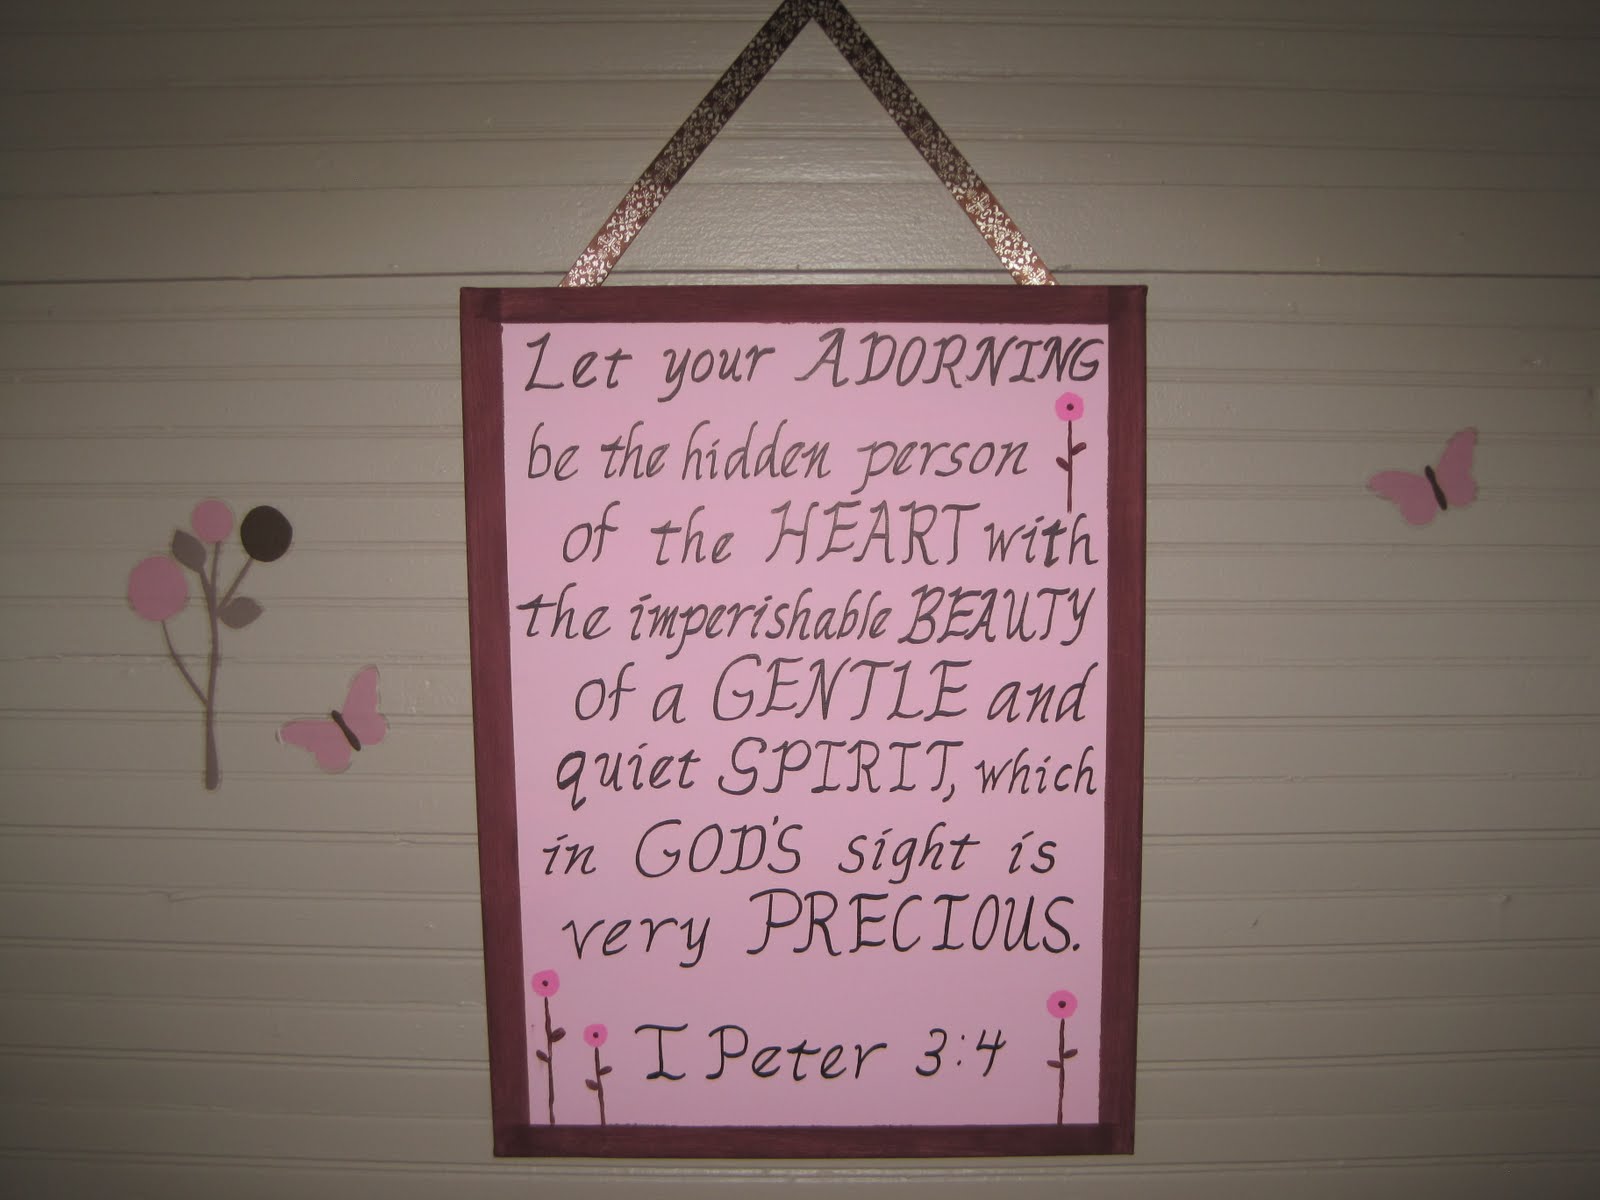 Let your ADORNING
be the hidden person
of the HEART with
the imperishable BEAUTY
of a GENTLE and
quiet SPIRIT, which
in GOD'S sight is
very PRECIOUS.
I Peter 3:4